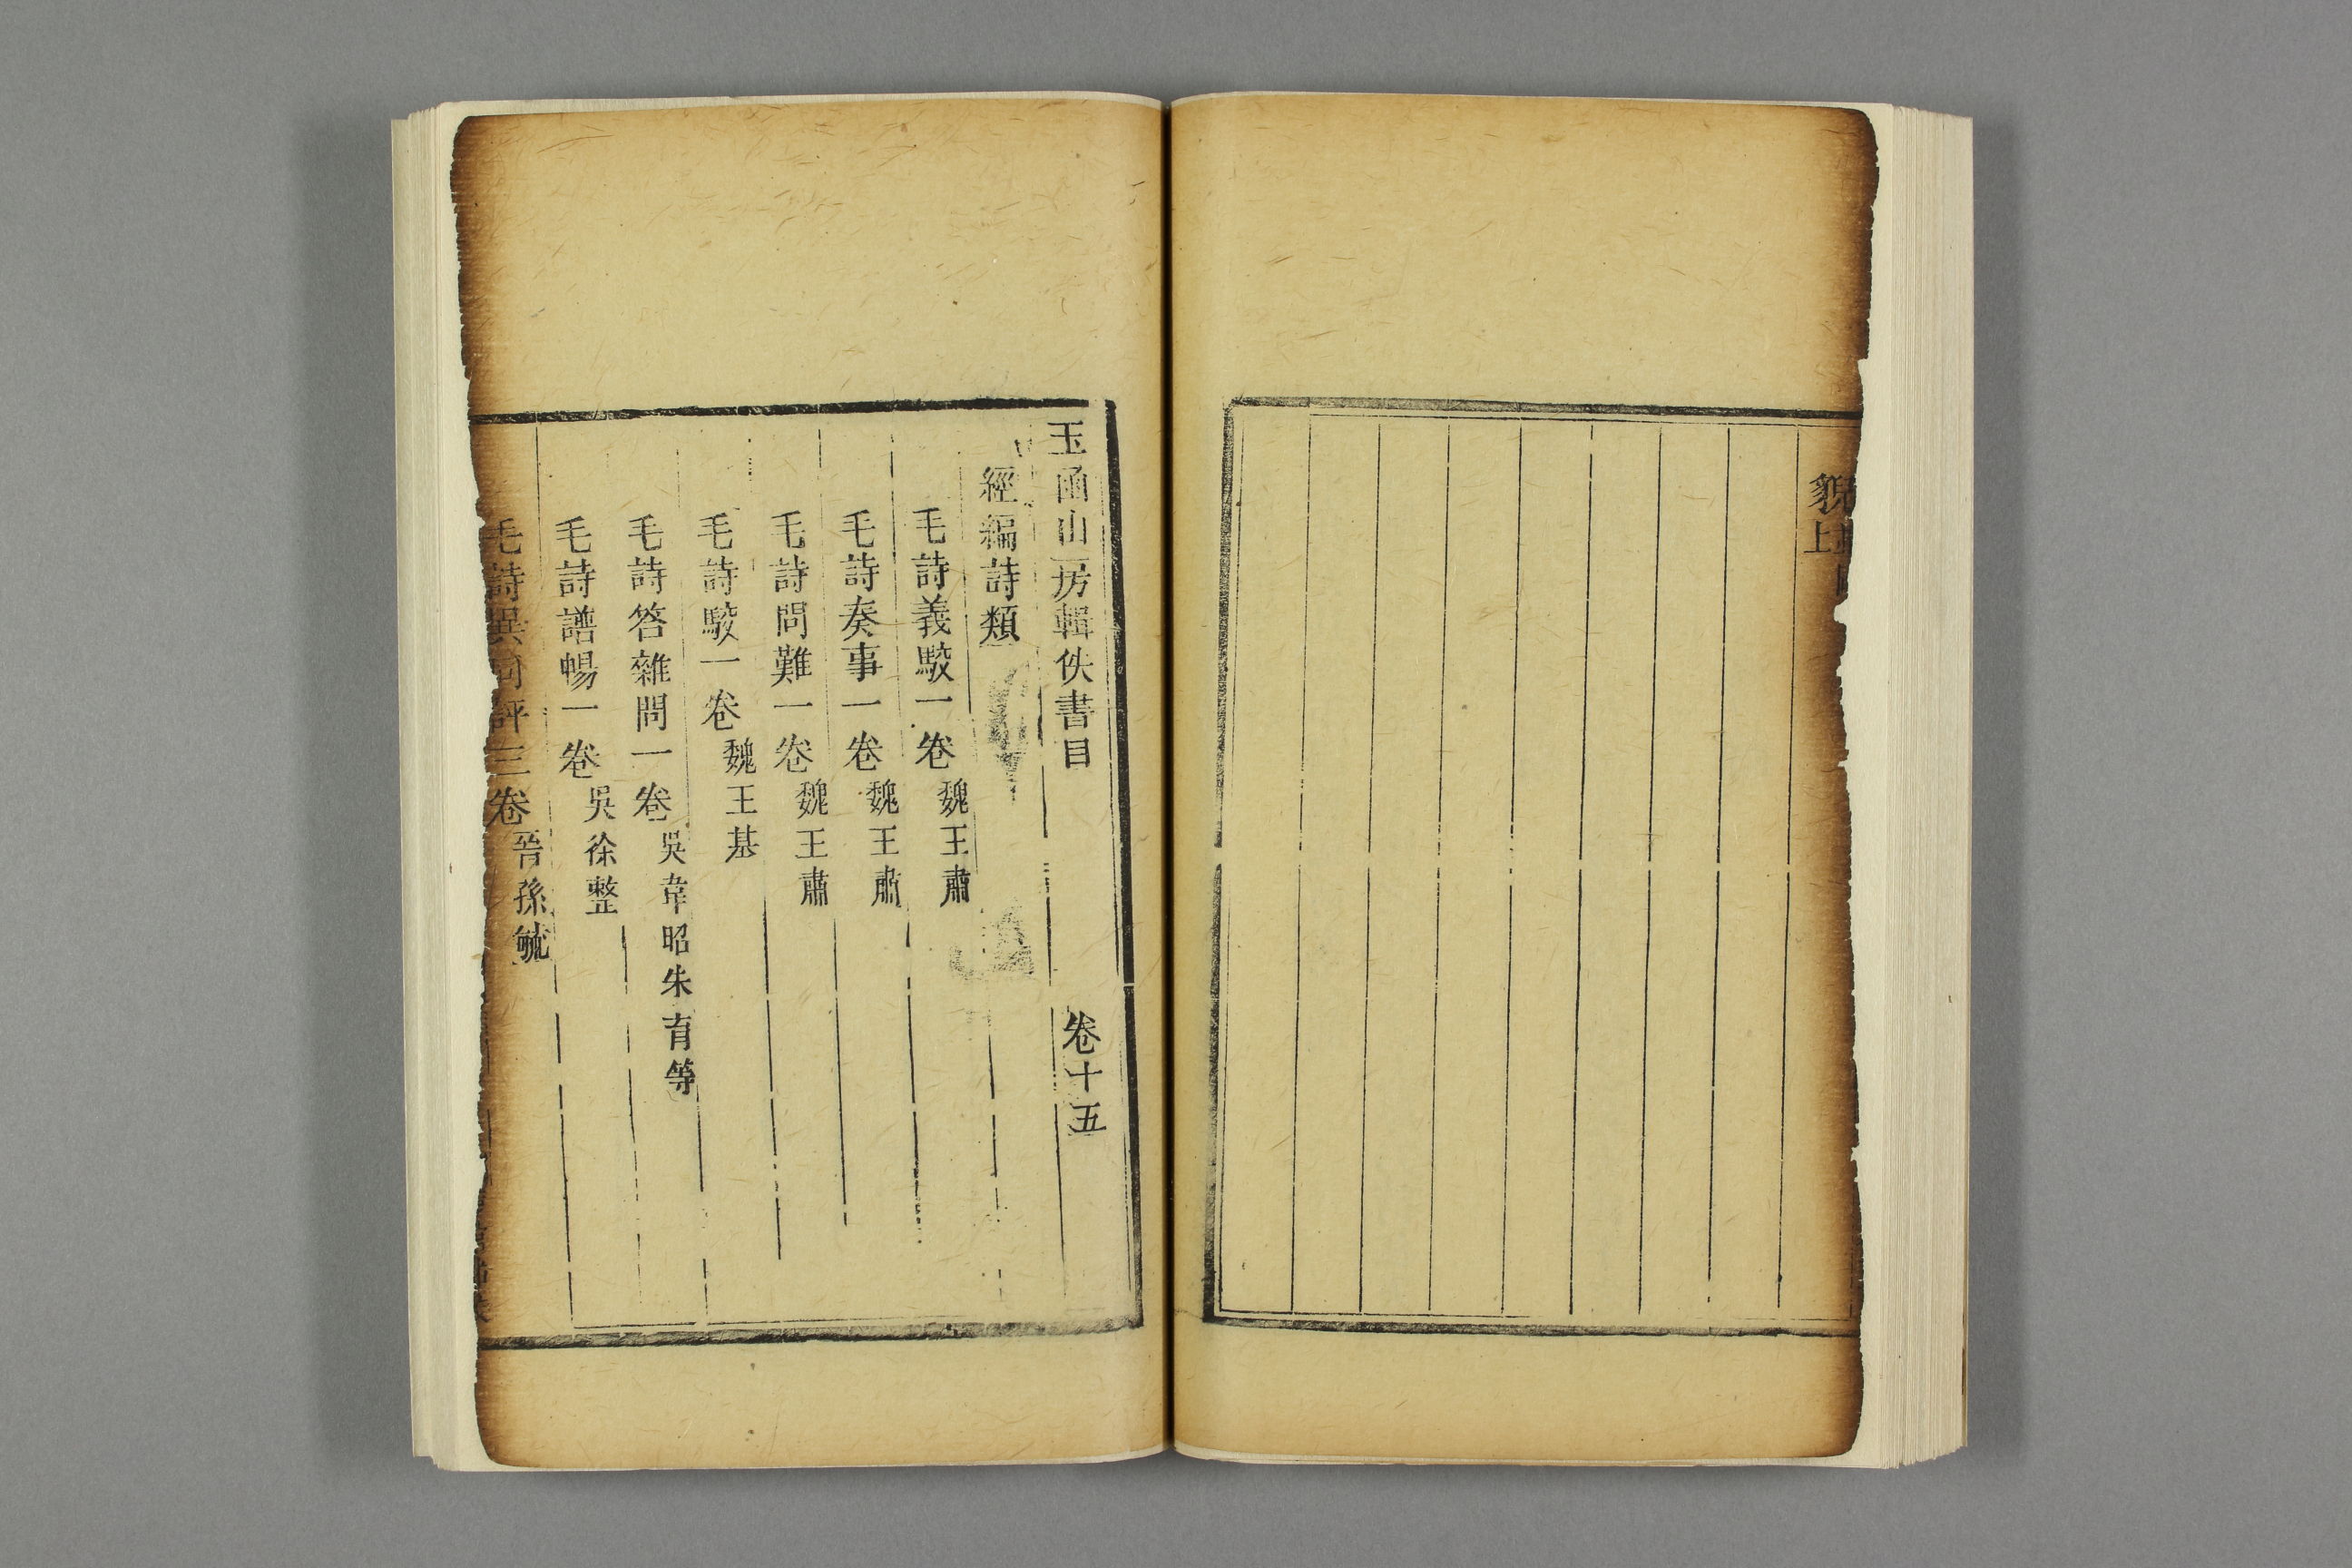 貌
上
玉函山房輯佚書目 卷十五
經編詩類
毛詩義駮一卷 魏王肅
毛詩奏事一卷 魏王肅
毛詩問難一卷 魏王肅
毛詩駮一卷 魏王基
毛詩答雜問一卷 吳韋昭朱育等
毛詩譜暢一卷 吳徐整
毛詩異同評三卷 晉孫毓